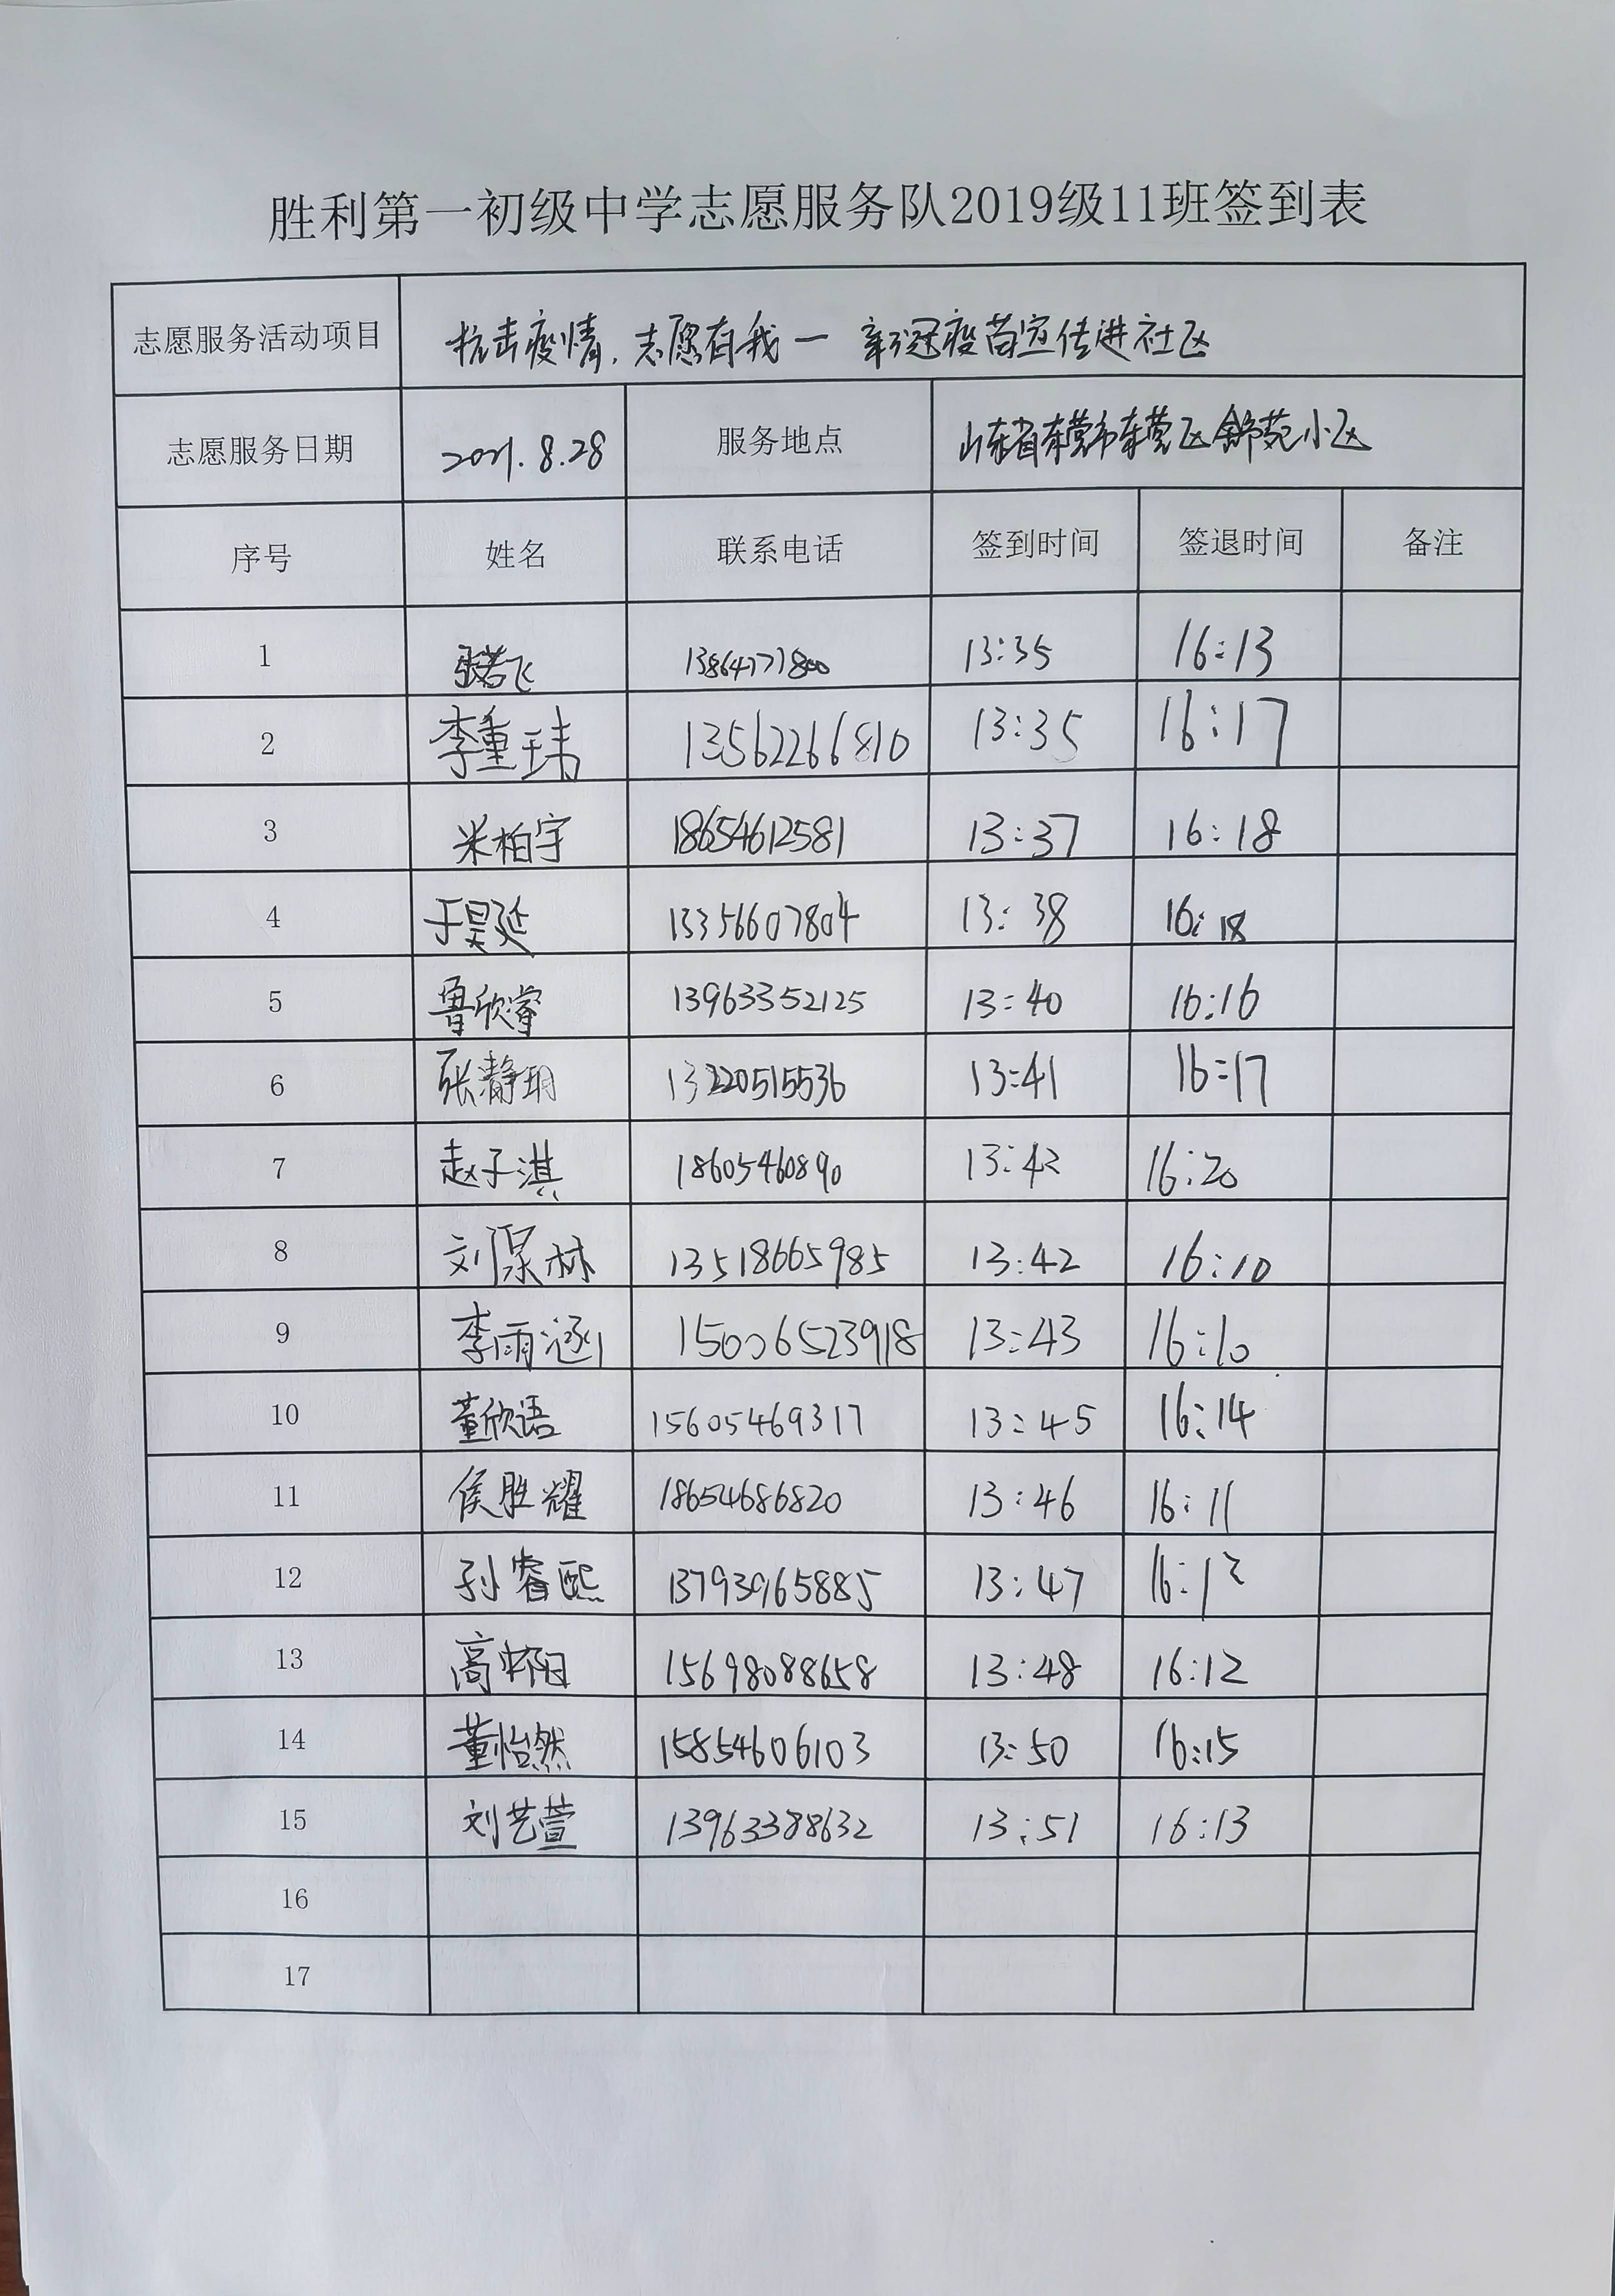 胜利第一初级中学志愿服务队2019级11班签到表
志愿服务活动项目 抗击疫情,志愿有我一新冠疫苗宣传进社区
志愿服务日期 2021.8.28 服务地点 山东省东营市东营区锦苑小区
序号 姓名 联系电话 签到时间 签退时间 备注
1 张若飞 13:35 16:13
2 李重玮 13562266810 13:35 16:17
3 米柏宇 18654612581 13:37 16:18
4 于昊延 13356607804 13:38 16:18
5 鲁欣睿 13963352125 13:40 16:16
6 张瀞玥 13220515536 13:41 16:17
7 赵子淇 18605460890 13:42 16:20
8 刘泉林 13518665985 13:42 16:10
9 李雨涵 15006523918 13:43 16:10
10 董欣语 15605469317 13:45 16:14
11 侯胜耀 18654686820 13:46 16:11
12 孙睿熙 13793965885 13:47 16:12
13 高怀阳 15698088658 13:48 16:12
14 董怡然 15854606103 13:50 16:15
15 刘艺萱 13963388632 13:51 16:13
16
17